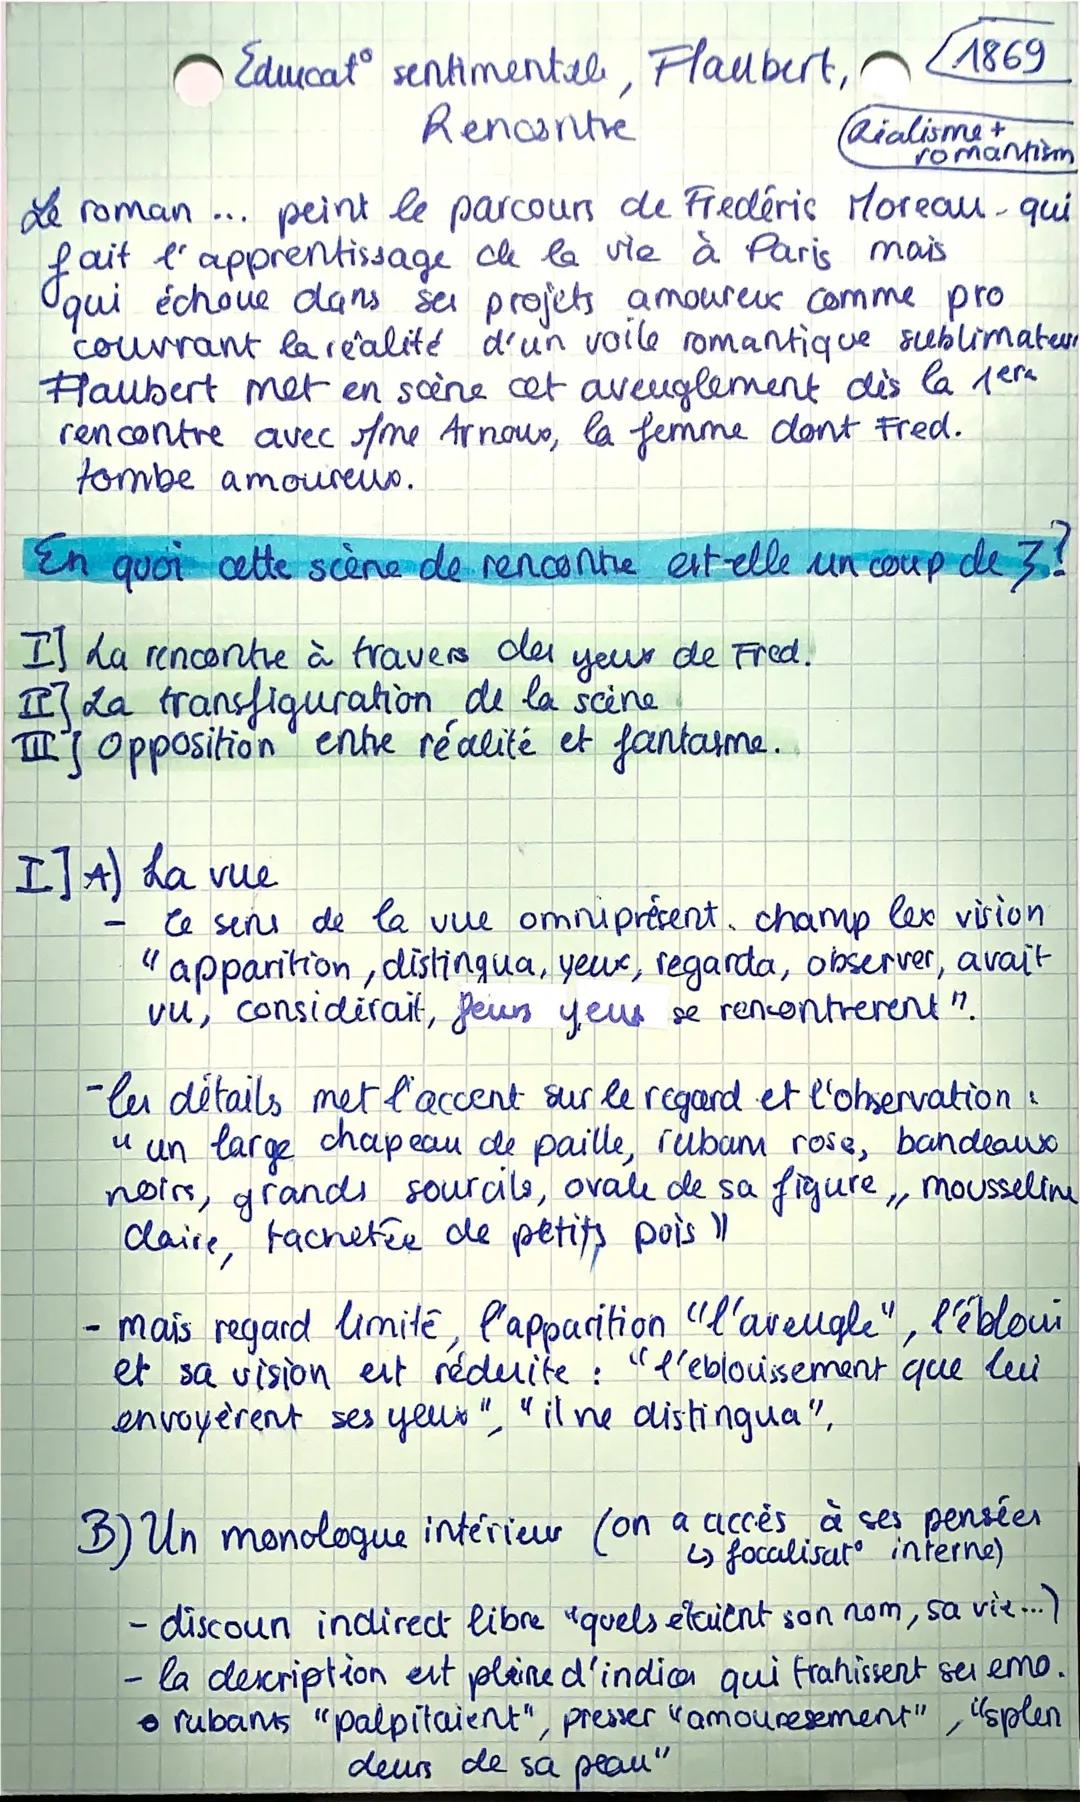 Educat° sentimentale, Flaubert, 1869
Rencontre
Réalisme + romantism
Le roman ... peint le parcours de Frédéric Moreau - qui
fait l'apprentissage de la vie à Paris mais
qui échoue dans ses projets amoureux comme pro
couvrant la réalité d'un voile romantique sublimateur
Flaubert met en scène cet aveuglement dès la 1ère
rencontre avec Mme Arnoux, la femme dont Fred.
tombe amoureux.
En quoi cette scène de rencontre est-elle un coup de 3?
I] La rencontre à travers des yeux de Fred.
II] La transfiguration de la scène
III] Opposition entre réalité et fantasme.
I] A) La vue
- le sens de la vue omniprésent. champ lex vision
"apparition, distingua, yeux, regarda, observer, avait
vu, considérait, leurs yeux se rencontrerent".
- les détails met l'accent sur le regard et l'observation :
"un large chapeau de paille, rubans rose, bandeaux
noirs, grands sourcils, ovale de sa figure,, mousseline
claire, tachetée de petits pois"
- mais regard limité, l'apparition "l'aveugle", l'ébloui
et sa vision est réduite : "l'eblouissement que lui
envoyèrent ses yeux", "il ne distingua",
B) Un monologue intérieur (on a accès à ses pensées
↳ focalisat° interne)
- discours indirect libre "quels étaient son nom, sa vie...)
- la description est pleine d'indices qui trahissent ses emo.
• rubans "palpitaient", presser "amouresement", "splen
deurs de sa peau"